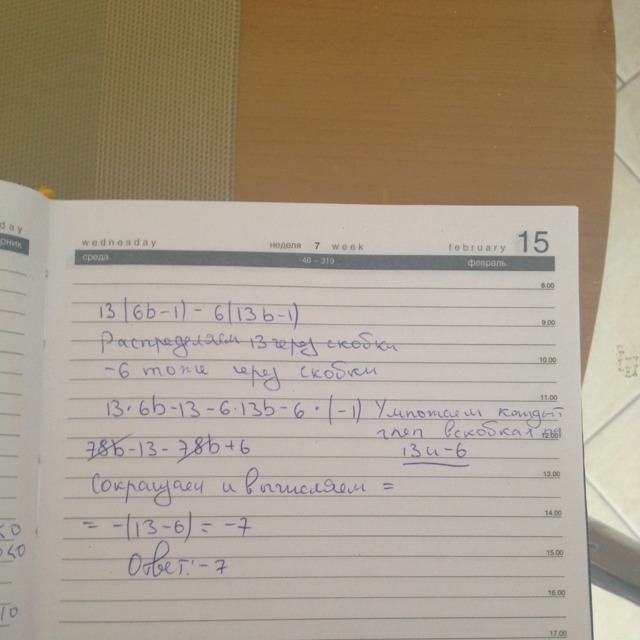 day
рник
wednesday неделя 7 week february 15
среда 46 - 319 февраль
8.00
13(6b-1) - 6(13b-1)
9.00
Распределяем 13 через скобки
10.00
-6 тоже через скобки
11.00
13·6b-13-6·13b-6·(-1) Умножаем каждый
член в скобках на
12.00
78b-13-78b+6 13 и -6
13.00
Сокращаем и вычисляем =
14.00
= -(13-6) = -7
15.00
Ответ: -7
16.00
17.00